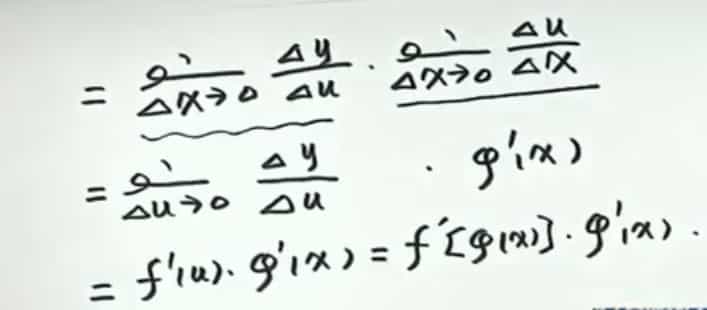 = lim Δx→0 Δy/Δu · lim Δx→0 Δu/Δx
= lim Δu→0 Δy/Δu · φ'(x)
= f'(u)·φ'(x) = f'[φ(x)]·φ'(x).